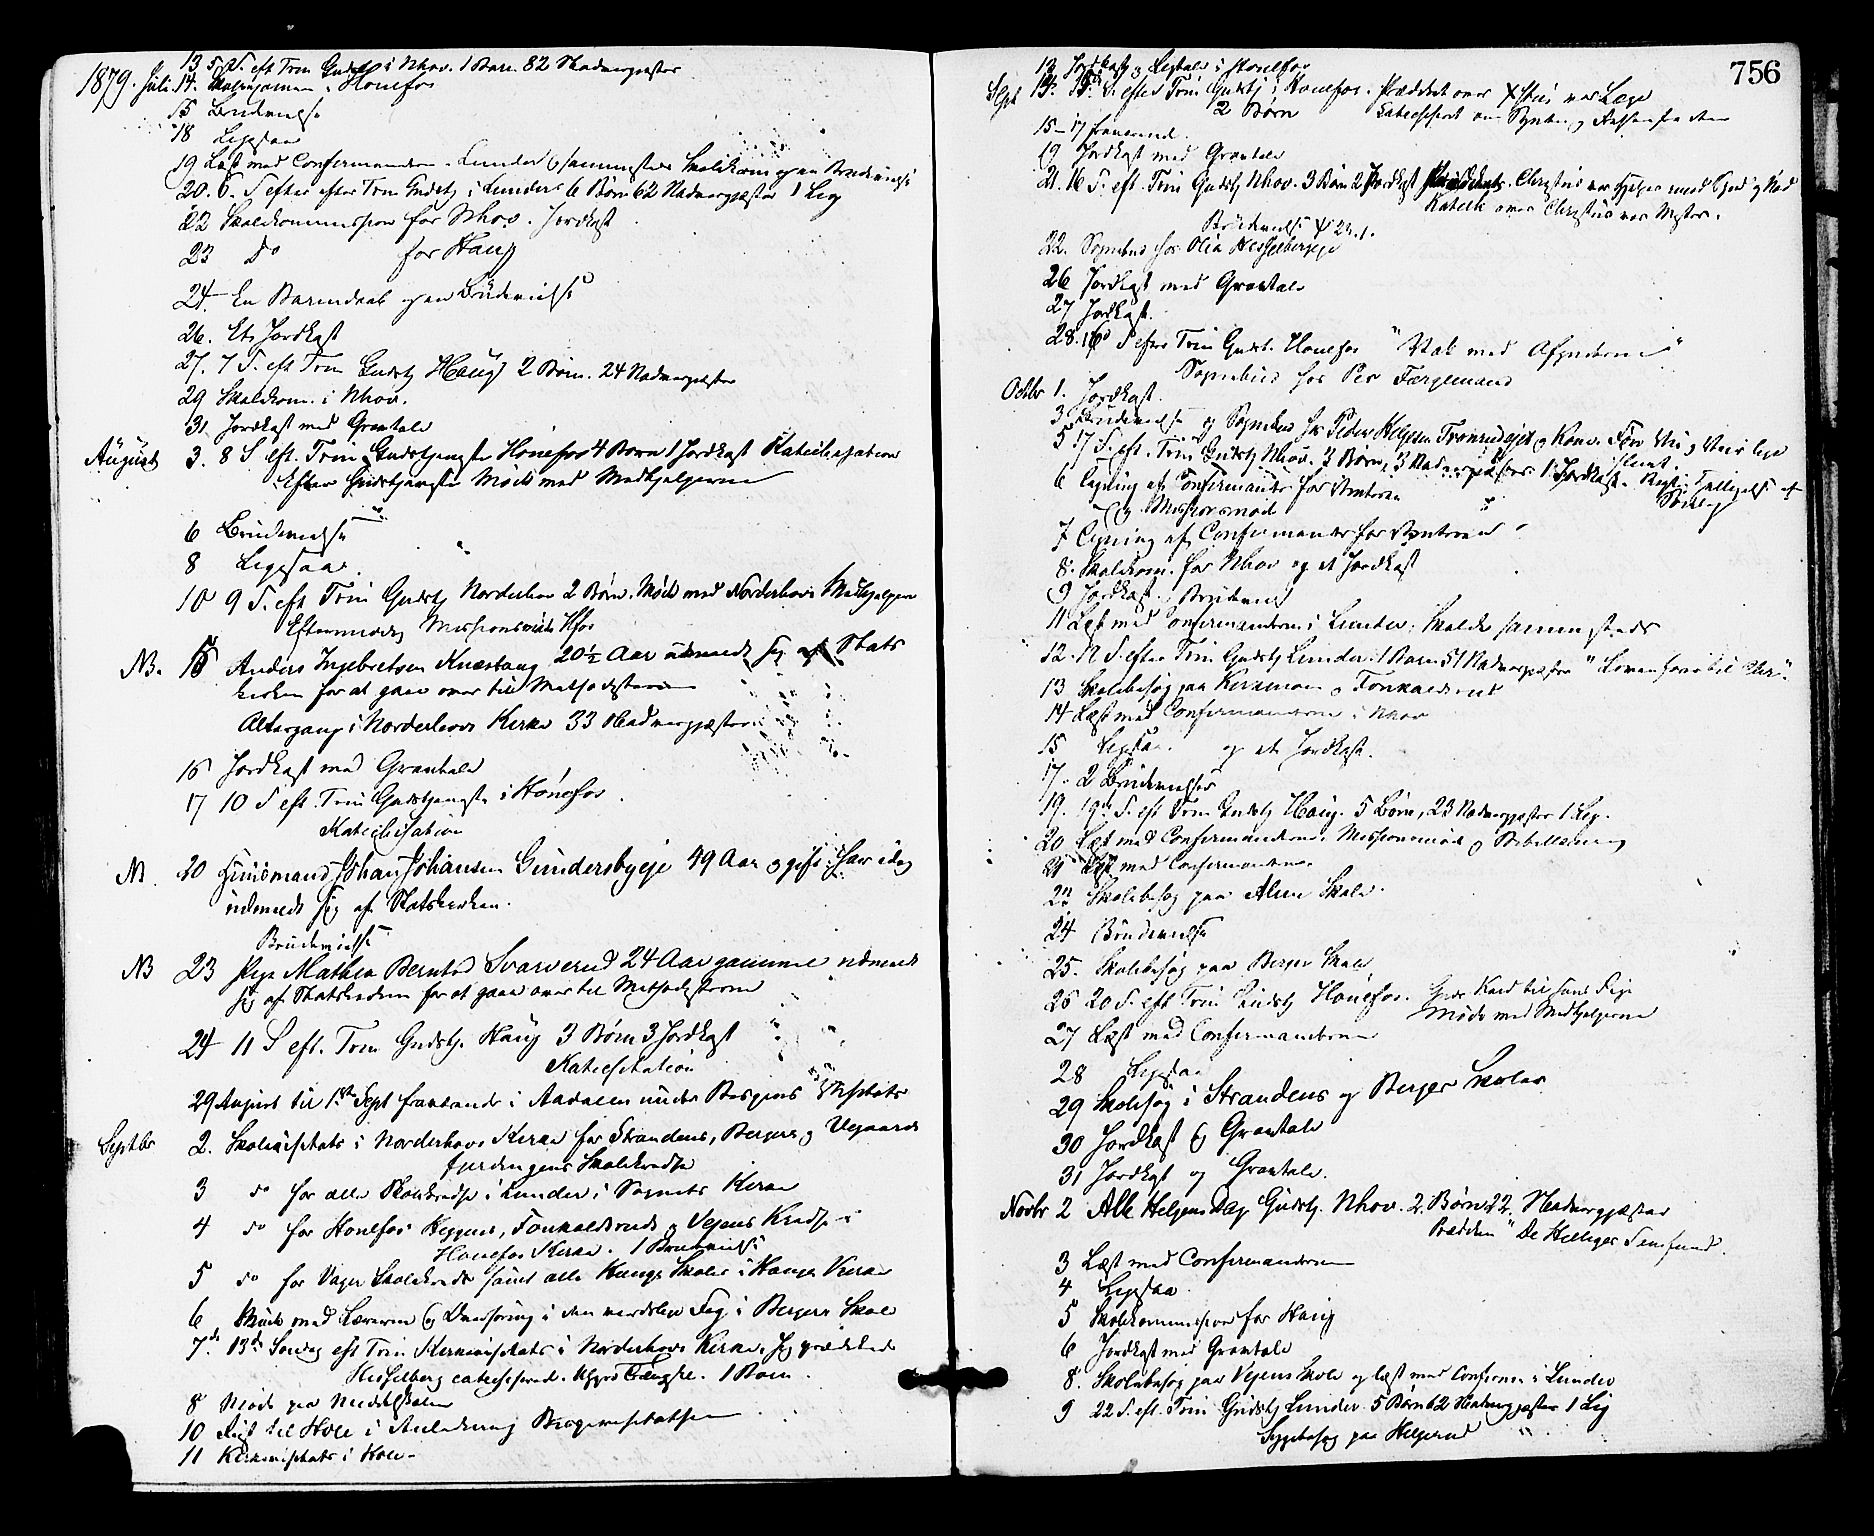 13 5 S. eft Trin Gudstj i Nhov. 1 Barn. 82 Nadvergjæster
1879. Juli 14. Skoleexamen i Hønefos
15 Brudevielse
18 Ligesaa
19 Læst med Confirmanderne i Lunder og sammesteds Skolekom og en Brudevielse
20. 6. S efter Trin Gudstj i Lunder 6 Børn 62 Nadvergjæster 1 Lig
22 Skolekommission for Nhov. Jordkast
23 do for Haug
24. En Barnedaab og en Brudevielse
26. Et Jordkast
27. 7 S. eft Trin Gudstj Haug 2 Børn. 24 Nadvergjæster
29 Skolekom. i Nhov.
31 Jordkast med Gravtale
August 3. 8 S eft. Trin Gudstjeneste Hønefos 4 Børn 1 Jordkast Katechisation
Efter Gudstjeneste Møde med Medhjelperne
6 Brudevielse
8 Ligesaa.
10 9 S. eft Trin Gudstj Norderhov 2 Børn. Møde med Norderhovs Medhjelpere
Eftermiddag Missionsmøde Hfos
NB. 15 Anders Ingebretsen Knestang 20½ Aar udmeldt sig af Stats
kirken for at gaa over til Methodisterne
Altergang i Norderhovs Kirke 33 Nadvergjæster
16 Jordkast med Gravtale
17 10 S eft. Trin Gudstjeneste i Hønefos
Katechisation
N. 20 Huusmand Johan Johansen Gundersbyeje 49 Aar og gift har idag
udmeldt sig af Statskirken.
Brudevielse
NB 23 Pige Mathea Berntsd Svarverud 24 Aar gammel udmeldt
sig af Statskirken for at gaa over til Methodisterne
24 11 S eft. Trin Gudstj. Haug 3 Børn 3 Jordkast
Katechisation
29 August til 1ste Sept fraværende i Aadalen under Bispens Visitats
Septbr 2. Skolevisitats i Norderhovs Kirke for Strandens, Bergers og Vegaards
fjerdingens Skolekredse
3 do for alle Skolekredse i Lunder i Sognets Kirke
4 do for Hønefos Heggens, Tonkoldsruds og Vejens Kredse i
Hønefos Kirke. 1 Brudevielse
5 do for Vager Skolekreds samt alle Haugs Skoler i Haugs Kirke
6 Møde med Lærerne og i den Fag i Bergers Skole
7de 13de Søndag eft Trin Kirkevisitats i Norderhovs Kirke. Jeg prædikede
Hesselberg catechiserede. 1 Barn.
8 Møde paa Middelskolen
10 Rejst til Hole i Anledning Bispevisitatsen
11 Kirkevisitats i Hole.
756
12 Jordkast og Ligtale i Hønefos
Sept 14. 14 S. efter Trin Gudstj i Hønefos. Præddket over Xstus vor Læge
2 Børn Katechiseret over Synden og
15-17 fraværende.
19 Jordkast med Gravtale
21. 15 S. eft. Trin Gudstj Nhov. 3 Børn 2 Jordkast Christus vor Hjelper med
Katech over Christus vor Mester.
Brudevielse
22. Sognebud hos Olia Hesselbergeje
26 Jordkast med Gravtale
27 Jordkast.
28. 16 S efter Trin Gudst. Hønefos "Væk med Afguderne"
Sognebud hos Per Færgemand
Octbr 1. Jordkast.
3 Brudevielse og Sognebud hos Peder Helgesen Tronrudejet og Kone.
5 17 S. eft. Trin Gudstj Nhov. 3 Børn, 3 Nadvergjæster 1 Jordkast.
6 Tegning af Confirmander for Vinteren
og Missionsmøde
7 Tegning af Confirmander for Vinteren
8. Skolekom. for Nhov og et Jordkast
9 Jordkast. Brudeviels
11 Læst med Confirmanderne i Lunder; Skolekom sammesteds
12. 18 S efter Trin Gudstj Lunder. 1 Barn 51 Nadvergjæster
13 Skolebesøg paa Kirkemoen og Tonkoldsrud
14 Læst med Confirmanderne i Nhov
15 Ligesaa. og et Jordkast.
17. 2 Brudevielser
19. 19de S. eft Trin Gudstj Haug. 5 Børn, 23 Nadvergjæster 1 Lig.
20 Læst med Confirmanderne. Missionsmøde og Bibellæsning
21 Læst med Confirmanderne
22 Skolebesøg paa Alme Skole.
24 Brudevielse
25. Skolebesøg paa Berger Skole
26 20 S. eft Trin Gudstj Hønefos.
Møde med Medhjelperne
27 Læst med Confirmanderne
28 Ligesaa
29 Skolebesøg i Strandens og Berger Skoler
30 Jordkast og Gravtale
31 Jordkast og Gravtale.
Novbr 2 Alle Helgens Dag Gudstj. Nhov. 2. Børn 22. Nadvergjæster
Prædiken "De Helliges Samfund.
3 Læst med Confirmanderne
4 Ligesaa
5 Skolekommission for Haug
6 Jordkast med Gravtale
8. Skolebesøg paa Vejens Skole og læst med Confirm. i Lunder
9 22 S. eft. Trin Gudstj Lunder. 5 Børn 62 Nadvergjæster 1 Lig
Sygebesøg paa Helgerud